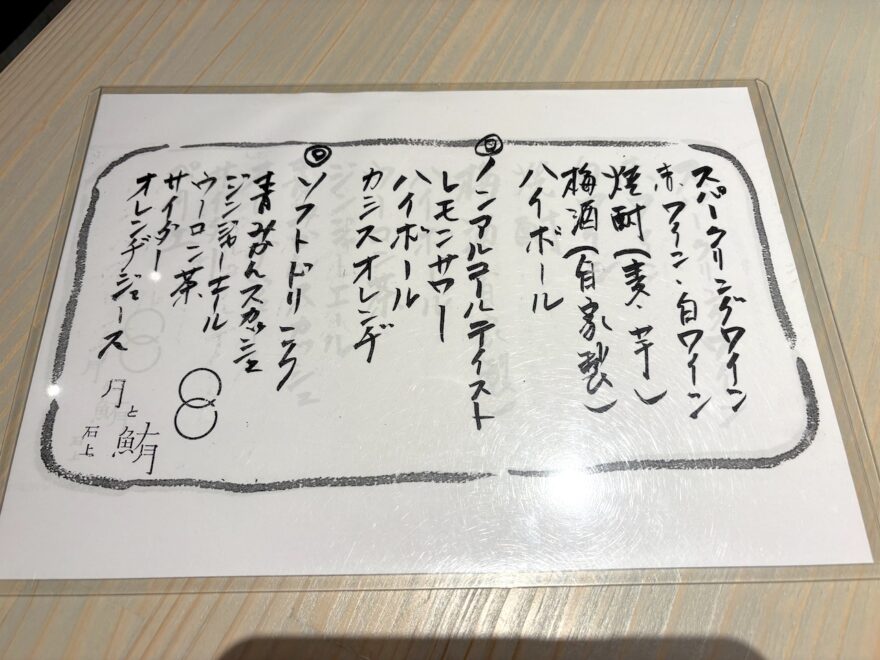 スパークリングワイン
赤ワイン・白ワイン
焼酎(麦・芋)
梅酒(自家製)
ハイボール
◎ノンアルコールテイスト
レモンサワー
ハイボール
カシスオレンヂ
◎ソフトドリンク
青みかんスカッシュ
ジンジャーエール
ウーロン茶
サイダー
オレンヂジュース
月と鮪
石上